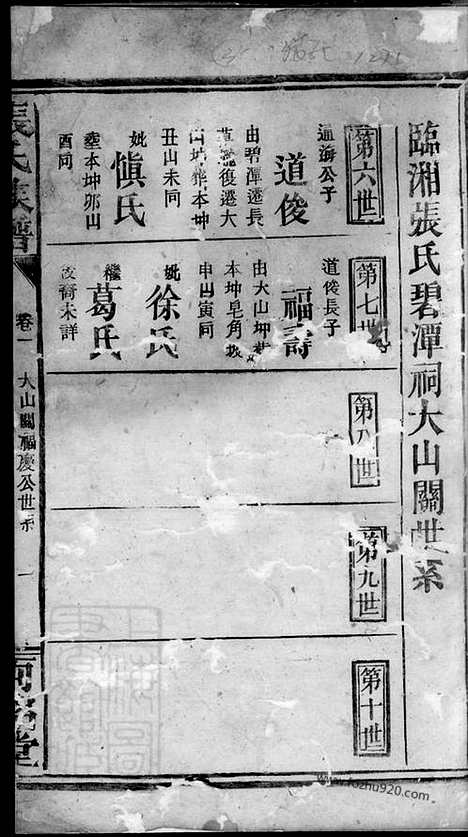 臨湘張氏碧潭祠大山關世系
第六世
通海公子
道俊
由碧潭遷長
復遷大
本坤
丑山未同
妣
慎氏
塟本坤卯山
酉同
第七世
道俊長子
福壽
由大山坤
本坤皂角坡
申山寅同
妣
徐氏
繼
葛氏
後裔未詳
第八世
第九世
第十世
張氏族譜
卷一
大山關福慶公世系
一
堂
www.fozhu920.com